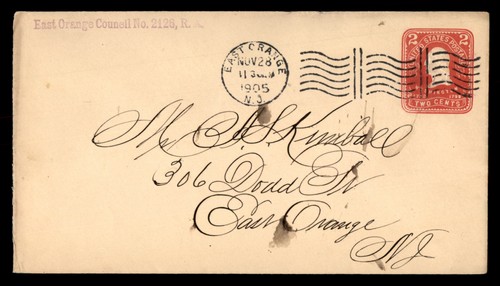 East Orange Council No. 2126, R. A.
EAST ORANGE
NOV 28
11 30 AM
1905
N.J.
2 2
UNITED STATES POSTAGE
TWO CENTS
Mr Kimball
306 Dodd St
East Orange
NJ